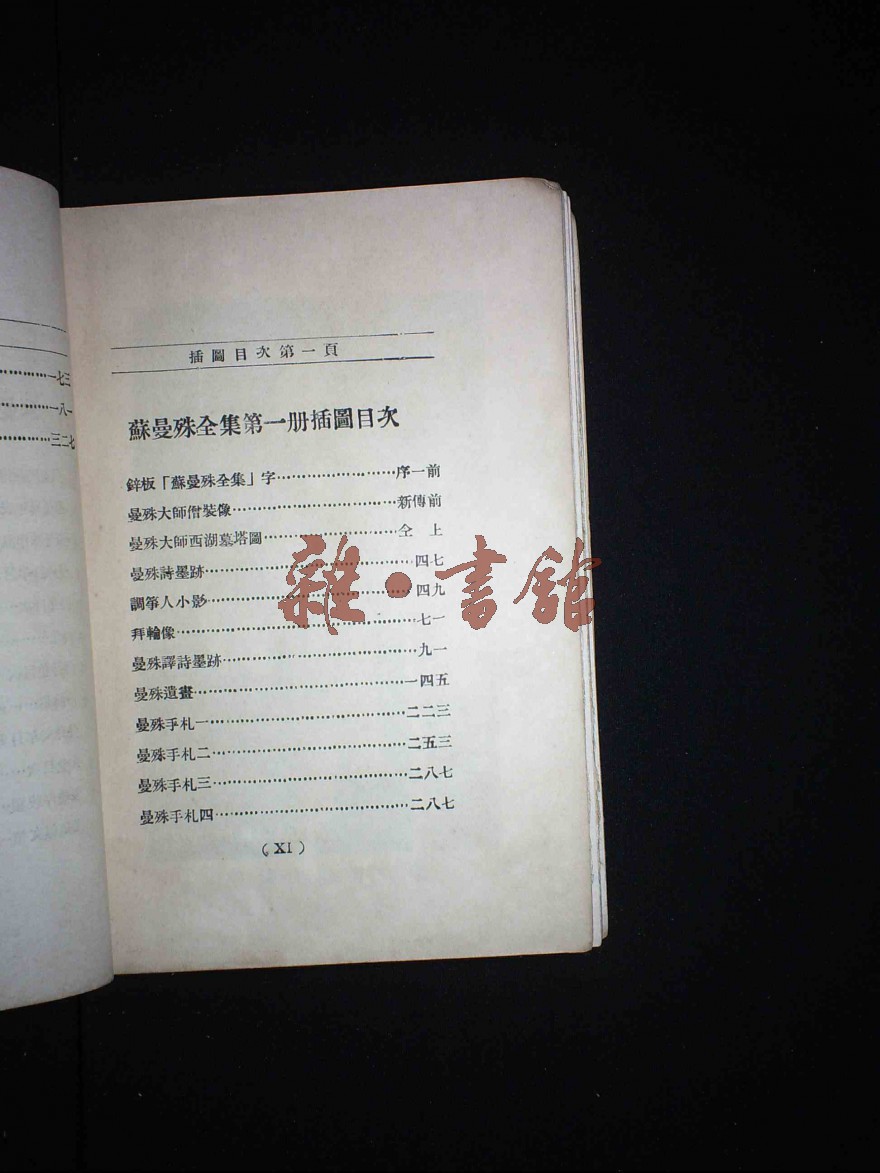 插圖目次第一頁
蘇曼殊全集第一册插圖目次
鋅板「蘇曼殊全集」字…………………序一前
曼殊大師僧裝像…………………新傳前
曼殊大師西湖墓塔圖…………………仝 上
曼殊詩墨跡…………………四七
調箏人小影…………………四九
拜輪像…………………七一
曼殊譯詩墨跡…………………九一
曼殊遺畫…………………一四五
曼殊手札一…………………二二三
曼殊手札二…………………二五三
曼殊手札三…………………二八七
曼殊手札四…………………二八七
(XI)
雜·書館
……一七三
……一八一
……三二七